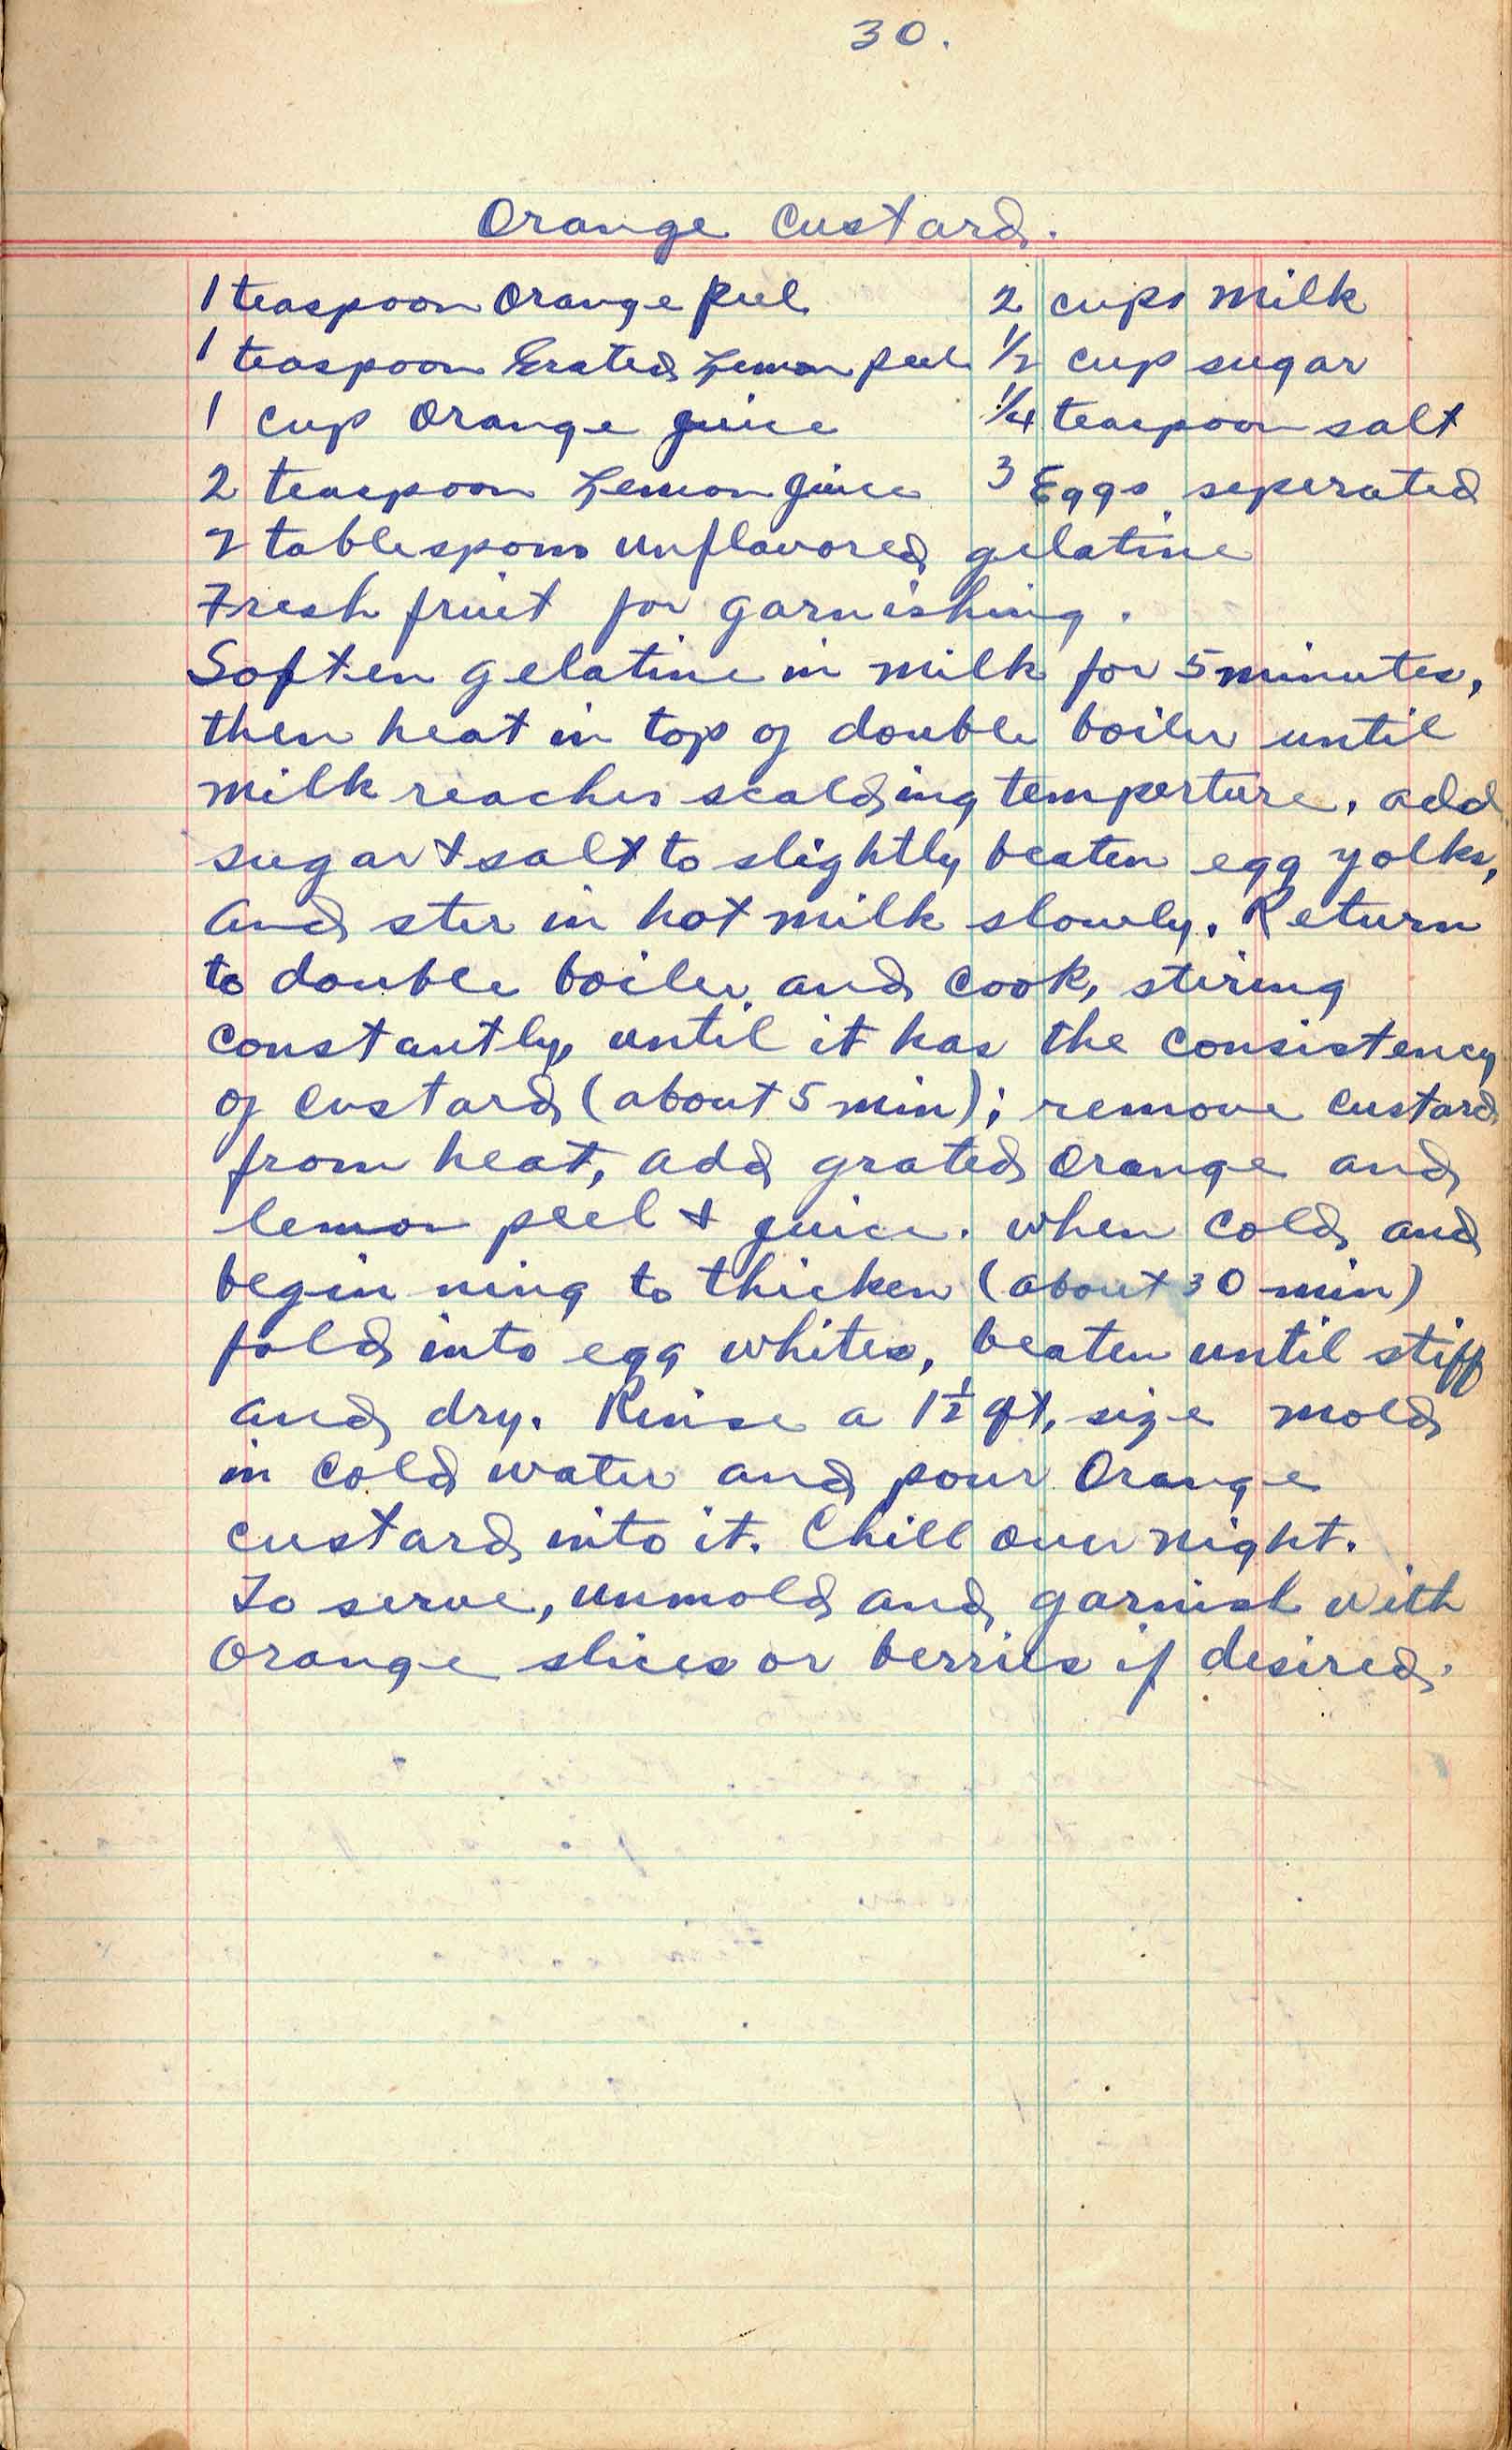 30.
Orange Custard.
1 teaspoon Orange peel 2 cups milk
1 teaspoon Grated Lemon peel 1/2 cup sugar
1 cup Orange juice 1/4 teaspoon salt
2 teaspoon Lemon juice 3 Eggs seperated
2 tablespoons unflavored gelatine
Fresh fruit for garnishing.
Soften gelatine in milk for 5 minutes,
then heat in top of double boiler until
milk reaches scalding temperture. add
sugar & salt to slightly beaten egg yolks,
and ster in hot milk slowly. Return
to double boiler and cook, stiring
constantly, until it has the consistency
of custard (about 5 min); remove custard
from heat, add grated Orange and
lemon peel & juice. when cold and
begin ning to thicken (about 30 min)
fold into egg whites, beaten until stiff
and dry. Rinse a 1 1/2 qt. size mold
in cold water and pour Orange
custard into it. Chill over night.
To serve, unmold and garnish with
Orange slices or berries if desired.